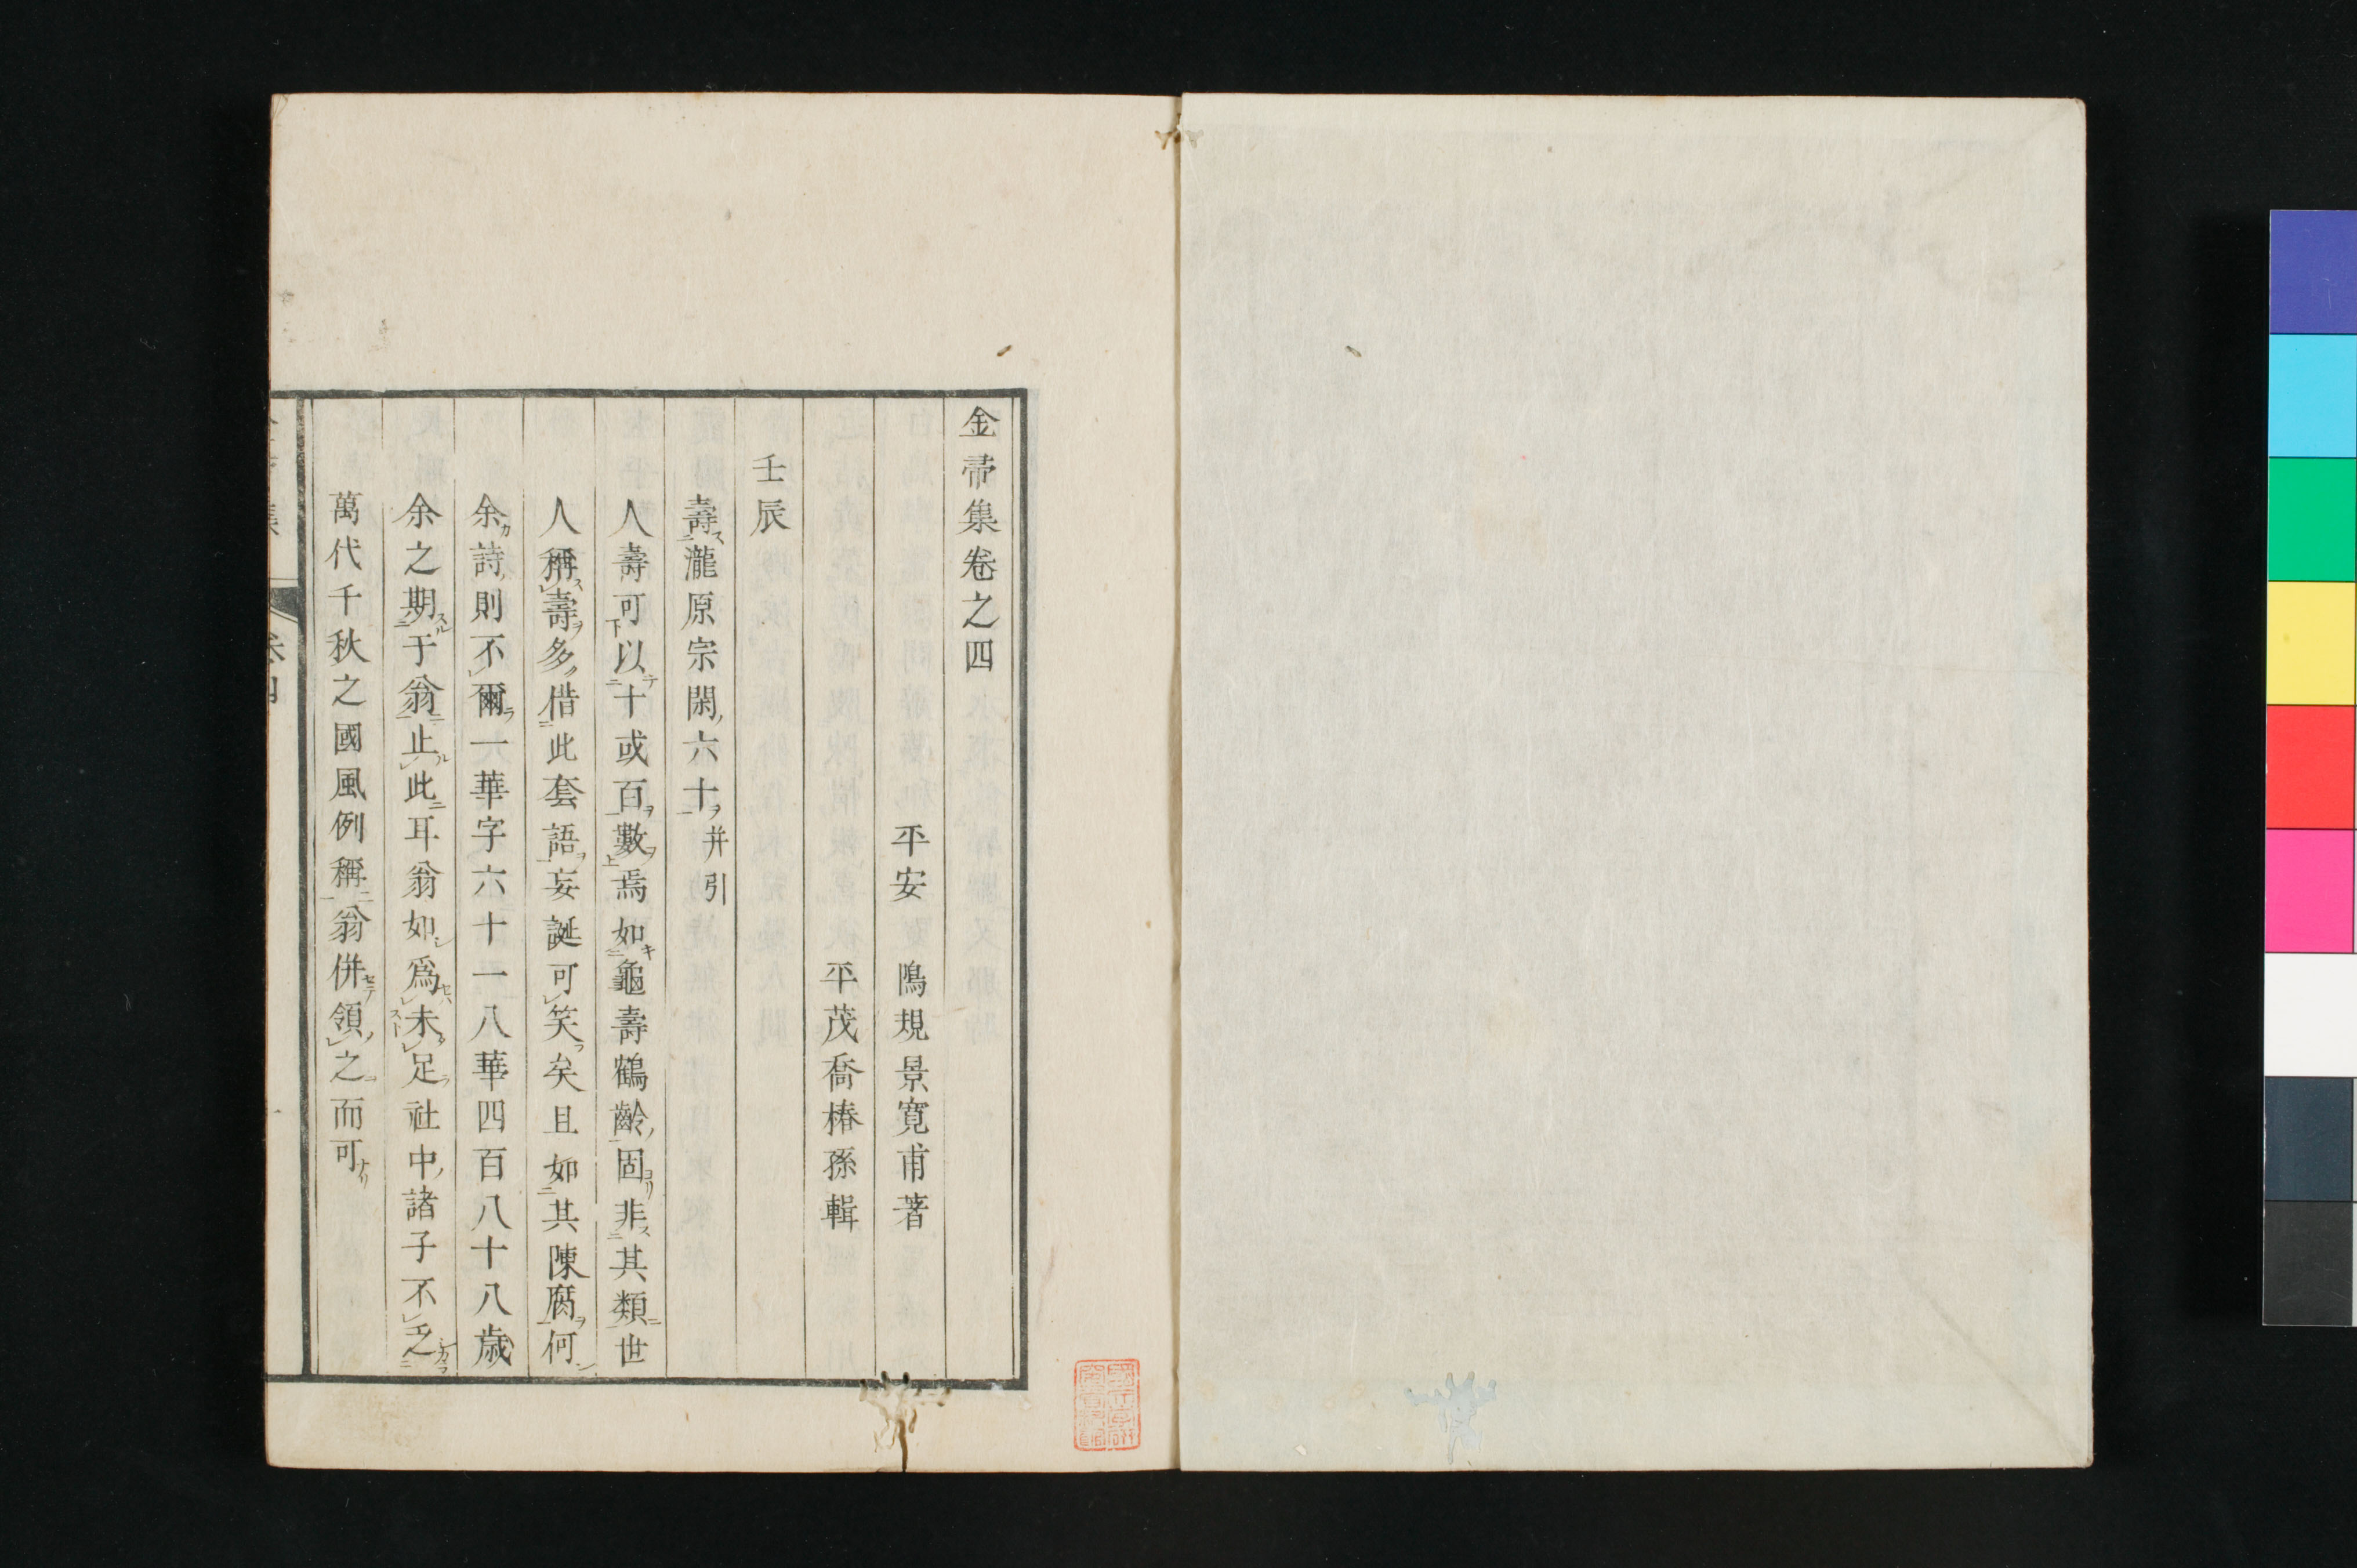 金帚集卷之四
平安 鴋規景寛甫著
平茂喬椿孫輯
壬辰
壽瀧原宗閑六十并引
人壽可以十或百數焉如龜壽鶴齡固非其類世
人稱壽多借此套語妄誕可笑矣且如其陳腐何
余詩則不爾一華字六十一八華四百八十八歲
余之期于翁止此耳翁如爲未足社中諸子不乏
萬代千秋之國風例稱翁併領之而可